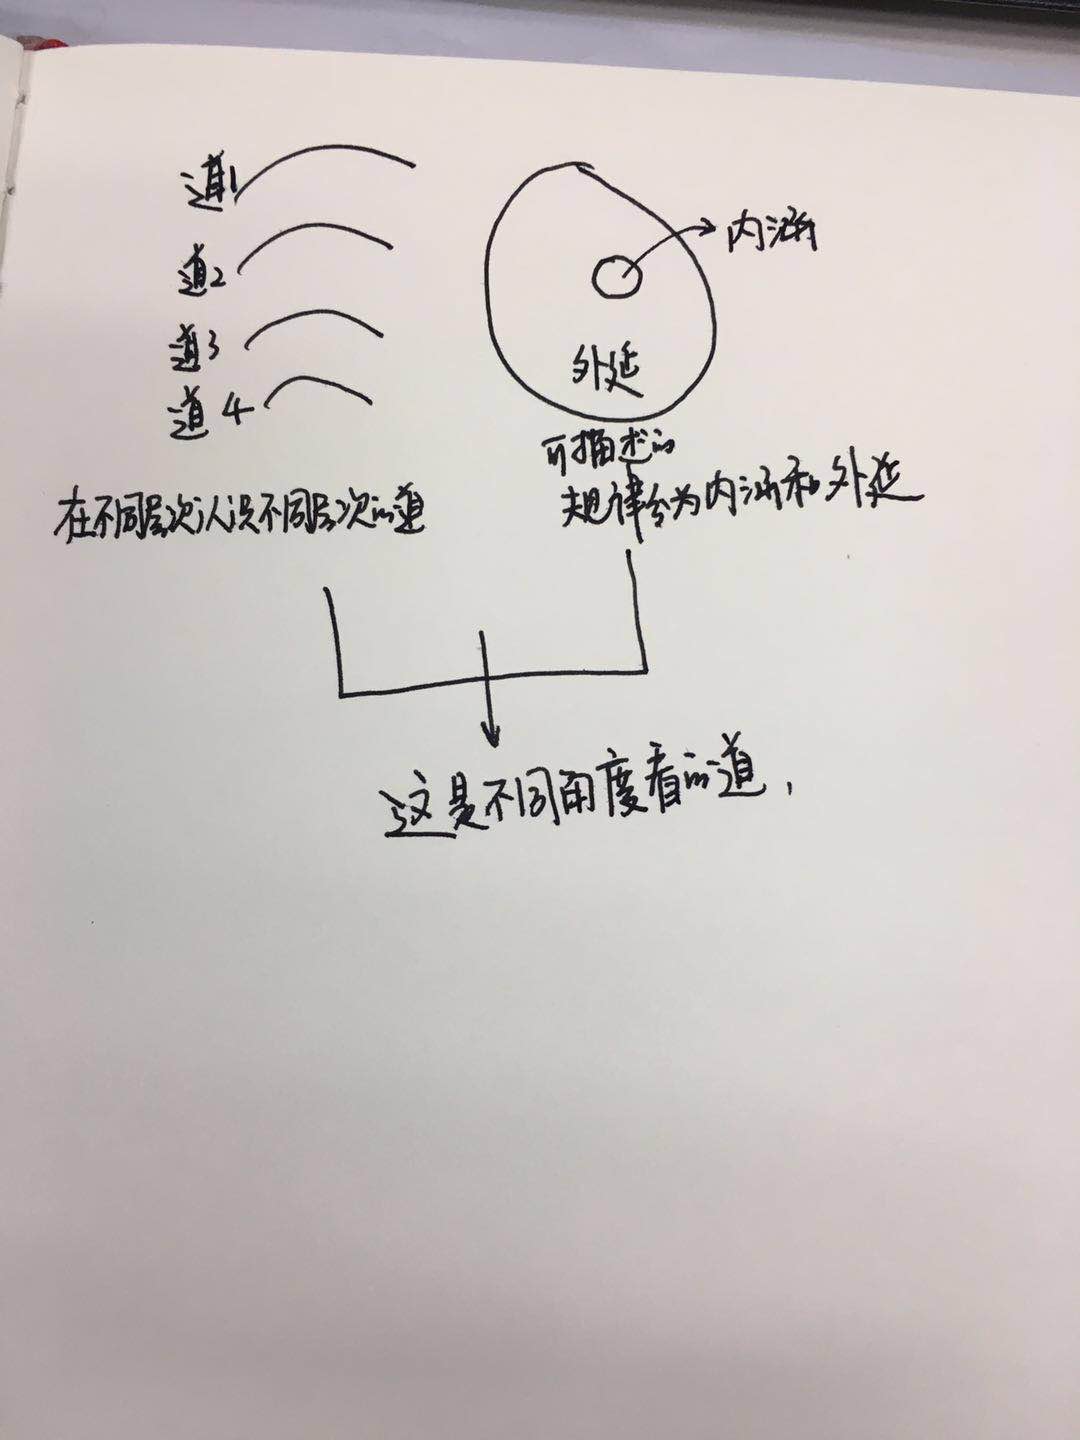 道1
道2
道3
道4
在不同层次认识不同层次的道
内涵
外延
可描述的
规律分为内涵和外延
这是不同角度看的道，